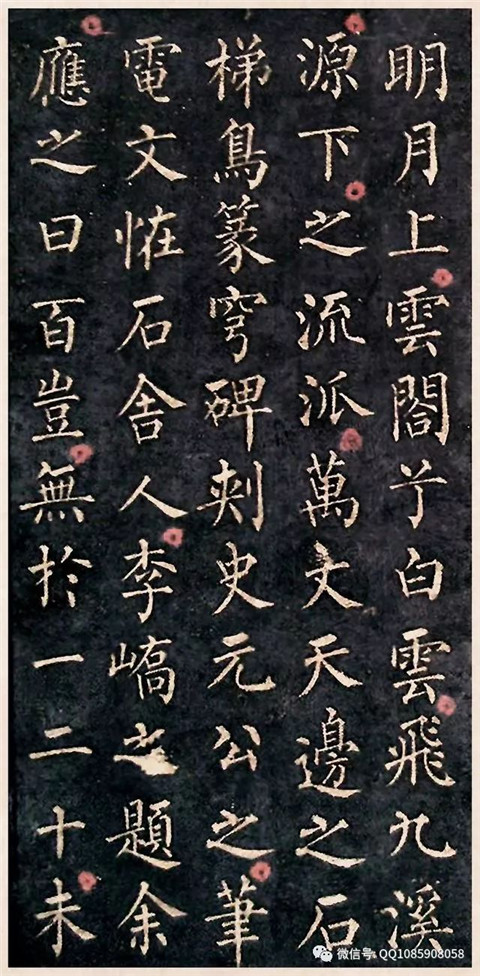 明月上雲閤兮白雲飛九溪
源下之流派萬丈天邊之石
梯鳥篆穹碑刺史元公之筆
電文恠石舍人李嶠之題余
應之曰百豈無於一二十未
微信号: QQ1085908058